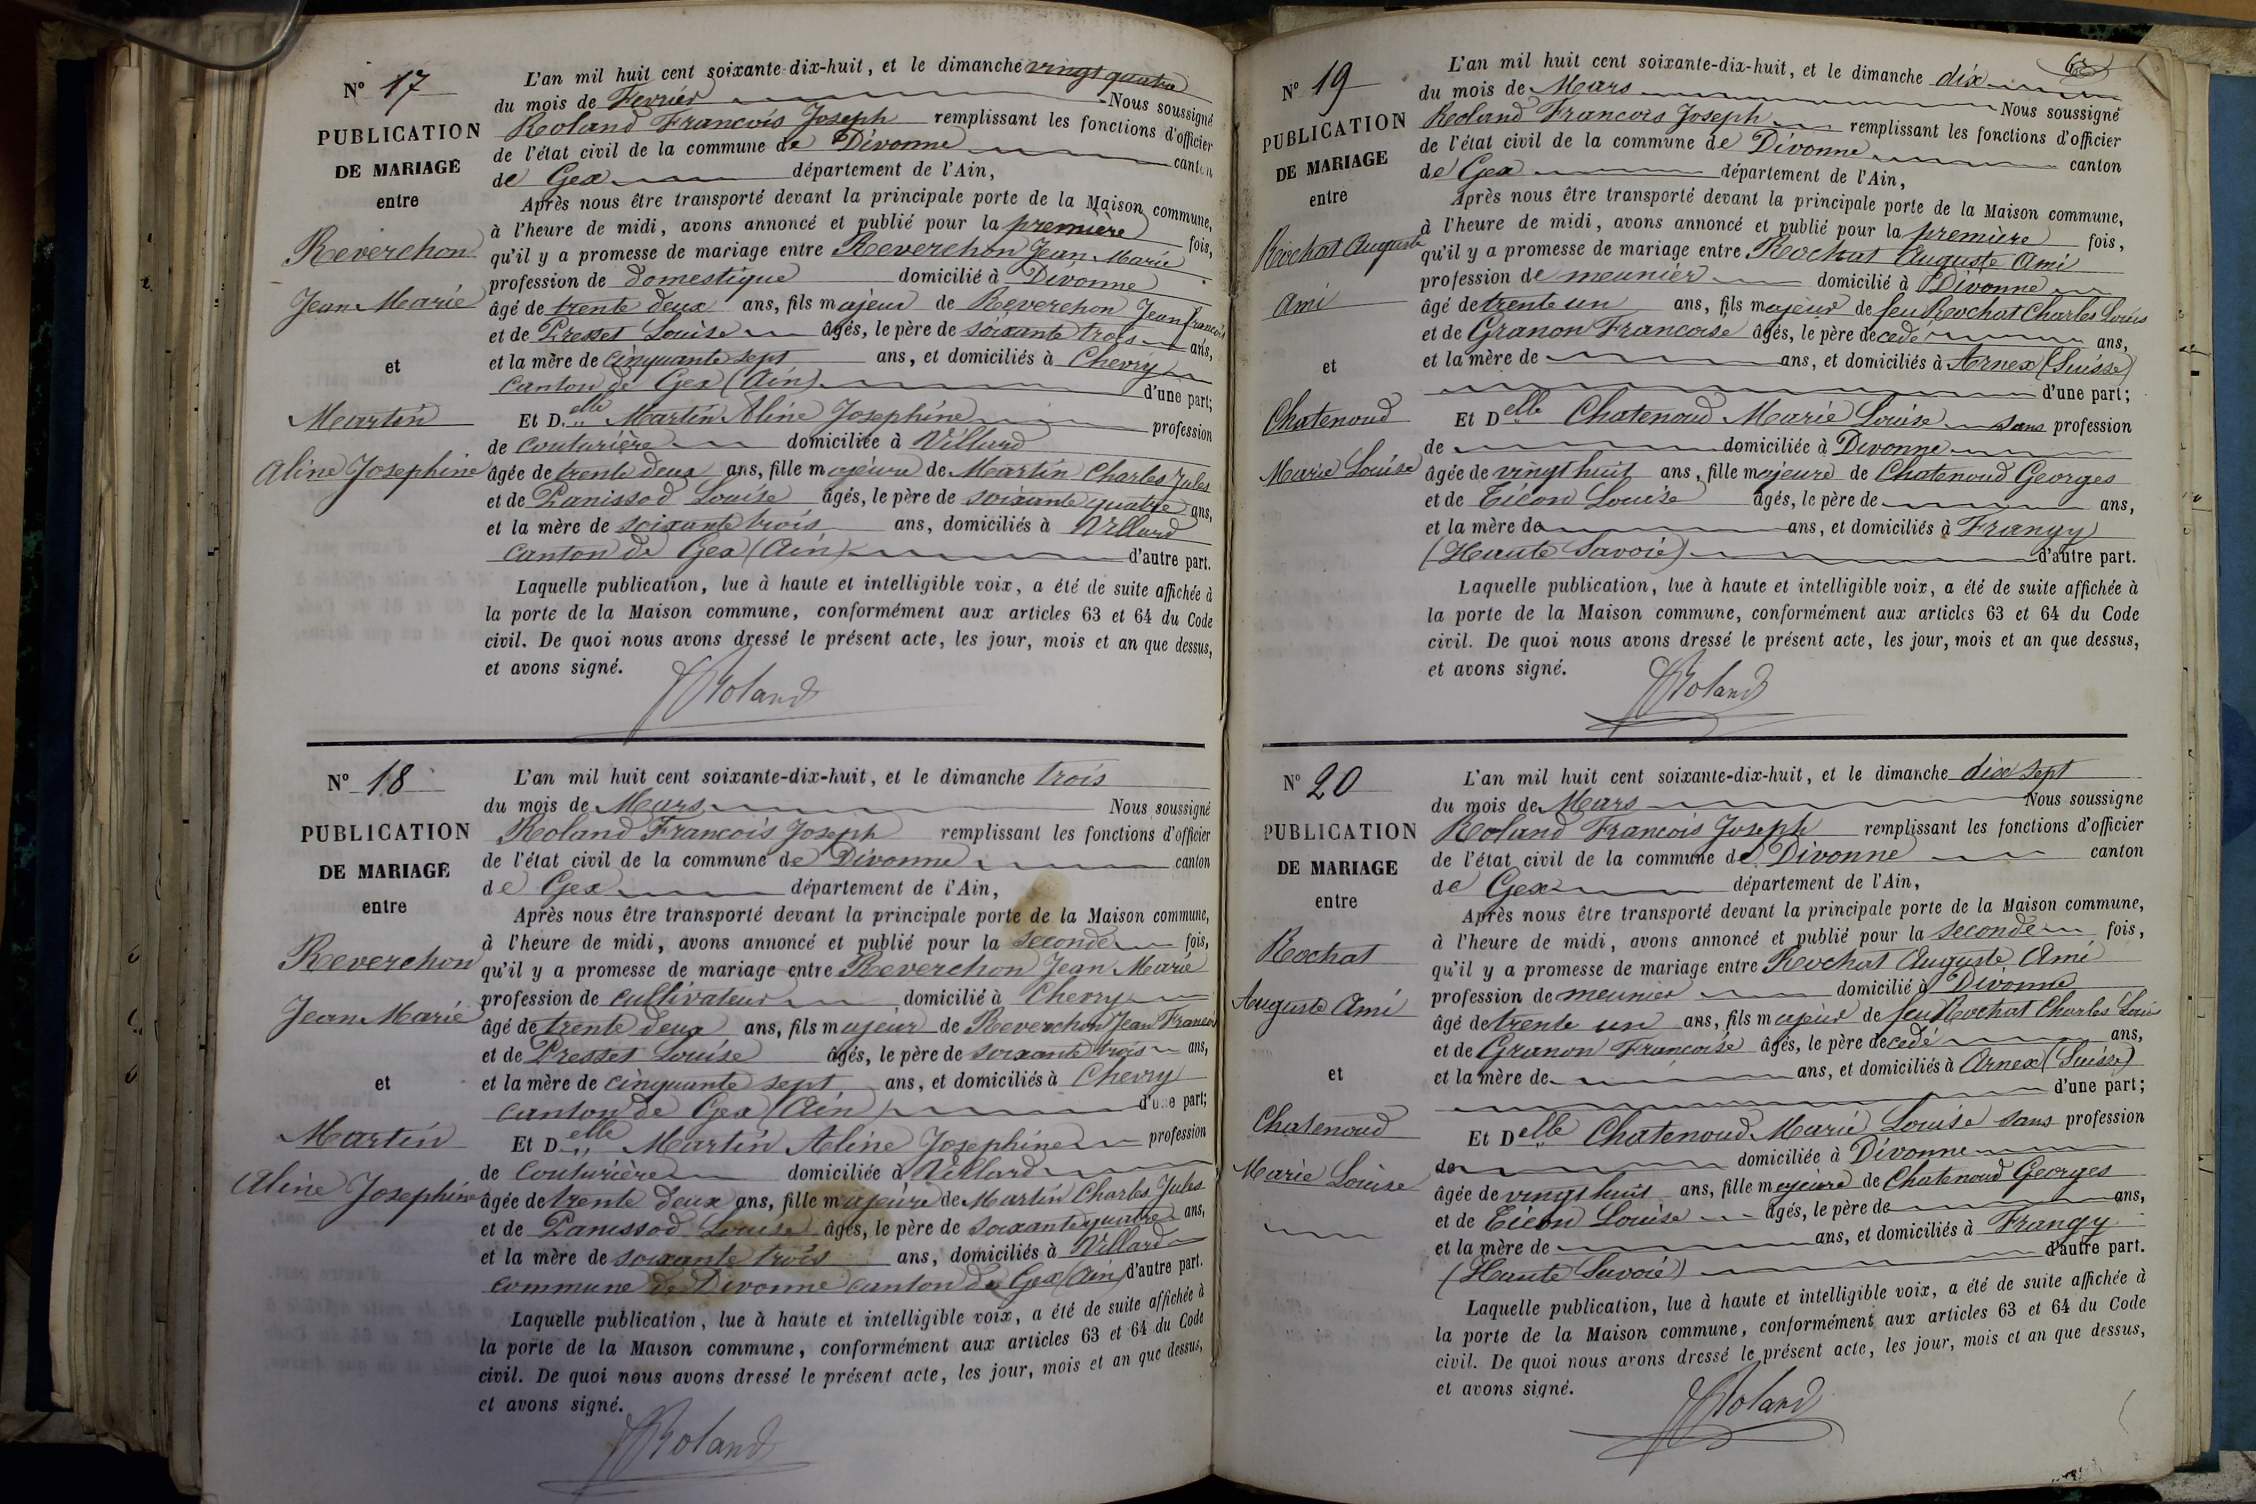 N° 17
PUBLICATION
DE MARIAGE
entre
Reverchon
Jean Marie
et
Martin
Aline Josephine
L'an mil huit cent soixante-dix-huit, et le dimanche vingt quatre
du mois de Fevrier Nous soussigné
Roland Francois Joseph remplissant les fonctions d'officier
de l'état civil de la commune de Divonne canton
de Gex département de l'Ain,
Après nous être transporté devant la principale porte de la Maison commune,
à l'heure de midi, avons annoncé et publié pour la première fois,
qu'il y a promesse de mariage entre Reverchon Jean Marie
profession de domestique domicilié à Divonne
âgé de trente deux ans, fils majeur de Reverchon Jean francois
et de Presset Louise âgés, le père de soixante trois ans,
et la mère de cinquante sept ans, et domiciliés à Chevry
canton de Gex (Ain) d'une part;
Et D.elle Martin Aline Josephine profession
de couturière domiciliée à Villard
âgée de trente deux ans, fille majeure de Martin Charles Jules
et de Panissod Louise âgés, le père de soixante quatre ans,
et la mère de soixante trois ans, domiciliés à Villard
canton de Gex (Ain) d'autre part.
Laquelle publication, lue à haute et intelligible voix, a été de suite affichée à
la porte de la Maison commune, conformément aux articles 63 et 64 du Code
civil. De quoi nous avons dressé le présent acte, les jour, mois et an que dessus,
et avons signé.
Roland
N° 18
PUBLICATION
DE MARIAGE
entre
Reverchon
Jean Marie
et
Martin
Aline Josephine
L'an mil huit cent soixante-dix-huit, et le dimanche trois
du mois de Mars Nous soussigné
Roland Francois Joseph remplissant les fonctions d'officier
de l'état civil de la commune de Divonne canton
de Gex département de l'Ain,
Après nous être transporté devant la principale porte de la Maison commune,
à l'heure de midi, avons annoncé et publié pour la seconde fois,
qu'il y a promesse de mariage entre Reverchon Jean Marie
profession de cultivateur domicilié à Chevry
âgé de trente deux ans, fils majeur de Reverchon Jean Francois
et de Presset Louise âgés, le père de soixante trois ans,
et la mère de cinquante sept ans, et domiciliés à Chevry
canton de Gex (Ain) d'une part;
Et D.elle Martin Aline Josephine profession
de couturière domiciliée à Villard
âgée de trente deux ans, fille majeure de Martin Charles Jules
et de Panissod Louise âgés, le père de soixante quatre ans,
et la mère de soixante trois ans, domiciliés à Villard
commune de Divonne canton de Gex (Ain) d'autre part.
Laquelle publication, lue à haute et intelligible voix, a été de suite affichée à
la porte de la Maison commune, conformément aux articles 63 et 64 du Code
civil. De quoi nous avons dressé le présent acte, les jour, mois et an que dessus,
et avons signé.
Roland
N° 19
PUBLICATION
DE MARIAGE
entre
Rochat Auguste
Ami
et
Chatenoud
Marie Louise
L'an mil huit cent soixante-dix-huit, et le dimanche dix
du mois de Mars Nous soussigné
Roland Francois Joseph remplissant les fonctions d'officier
de l'état civil de la commune de Divonne canton
de Gex département de l'Ain,
Après nous être transporté devant la principale porte de la Maison commune,
à l'heure de midi, avons annoncé et publié pour la première fois,
qu'il y a promesse de mariage entre Rochat Auguste Ami
profession de meunier domicilié à Divonne
âgé de trente un ans, fils majeur de feu Rochat Charles Louis
et de Granon Francoise âgés, le père decedé ans,
et la mère de ans, et domiciliés à Arnex (Suisse)
d'une part;
Et Delle Chatenoud Marie Louise sans profession
de domiciliée à Divonne
âgée de vingt huit ans, fille majeure de Chatenoud Georges
et de Ticon Louise âgés, le père de ans,
et la mère de ans, et domiciliés à Frangy
(Haute Savoie) d'autre part.
Laquelle publication, lue à haute et intelligible voix, a été de suite affichée à
la porte de la Maison commune, conformément aux articles 63 et 64 du Code
civil. De quoi nous avons dressé le présent acte, les jour, mois et an que dessus,
et avons signé.
Roland
N° 20
PUBLICATION
DE MARIAGE
entre
Rochat
Auguste Ami
et
Chatenoud
Marie Louise
L'an mil huit cent soixante-dix-huit, et le dimanche dix sept
du mois de Mars Nous soussigné
Roland Francois Joseph remplissant les fonctions d'officier
de l'état civil de la commune de Divonne canton
de Gex département de l'Ain,
Après nous être transporté devant la principale porte de la Maison commune,
à l'heure de midi, avons annoncé et publié pour la seconde fois,
qu'il y a promesse de mariage entre Rochat Auguste Ami
profession de meunier domicilié à Divonne
âgé de trente un ans, fils majeur de feu Rochat Charles Louis
et de Granon Francoise âgés, le père decedé ans,
et la mère de ans, et domiciliés à Arnex (Suisse)
d'une part;
Et Delle Chatenoud Marie Louise sans profession
de domiciliée à Divonne
âgée de vingt huit ans, fille majeure de Chatenoud Georges
et de Ticon Louise âgés, le père de ans,
et la mère de ans, et domiciliés à Frangy
(Haute Savoie) d'autre part.
Laquelle publication, lue à haute et intelligible voix, a été de suite affichée à
la porte de la Maison commune, conformément aux articles 63 et 64 du Code
civil. De quoi nous avons dressé le présent acte, les jour, mois et an que dessus,
et avons signé.
Roland